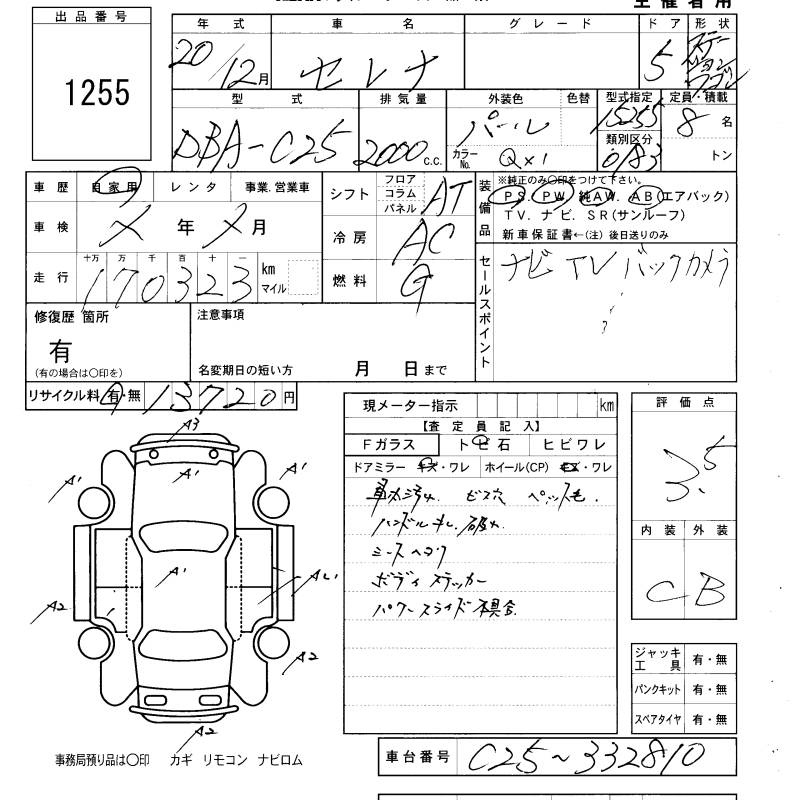 主催者用
出品番号
1255
年式 車名 グレード ドア 形状
20/12月 セレナ 5 ステーションワゴン
型式 排気量 外装色 色替 型式指定 定員・積載
DBA-C25 2000c.c. パール 15255 8名
カラーNo. QX1 類別区分 0183 トン
車歴 自家用 レンタ 事業.営業車
車検 メ年メ月
走行 十万 万 千 百 十 一
170323 km マイル
シフト フロア コラム パネル AT
冷房 AC
燃料 G
装備品
※純正のみ〇印をつけて下さい。
PS. PW. 純AW. AB(エアバック)
TV. ナビ. SR(サンルーフ)
新車保証書←(注) 後日送りのみ
セールスポイント
ナビ TV バックカメラ
修復歴 箇所
有
(有の場合は〇印を)
注意事項
名変期日の短い方 月 日まで
リサイクル料 有・無 13720円
現メーター指示 km
【査定員記入】
Fガラス トビ石 ヒビワレ
ドアミラー キズ・ワレ ホイール(CP) キズ・ワレ
車内汚れ ビス穴 ペット毛.
ハンドルキレ.破れ
シートヘコク
ボディステッカー
パワースライド不具合
評価点
3.5
内装 外装
C B
ジャッキ工具 有・無
パンクキット 有・無
スペアタイヤ 有・無
A3
A1
A1
A1
A1
AL1
A2
A2
A2
事務局預り品は〇印 カギ リモコン ナビロム
車台番号 C25~332810